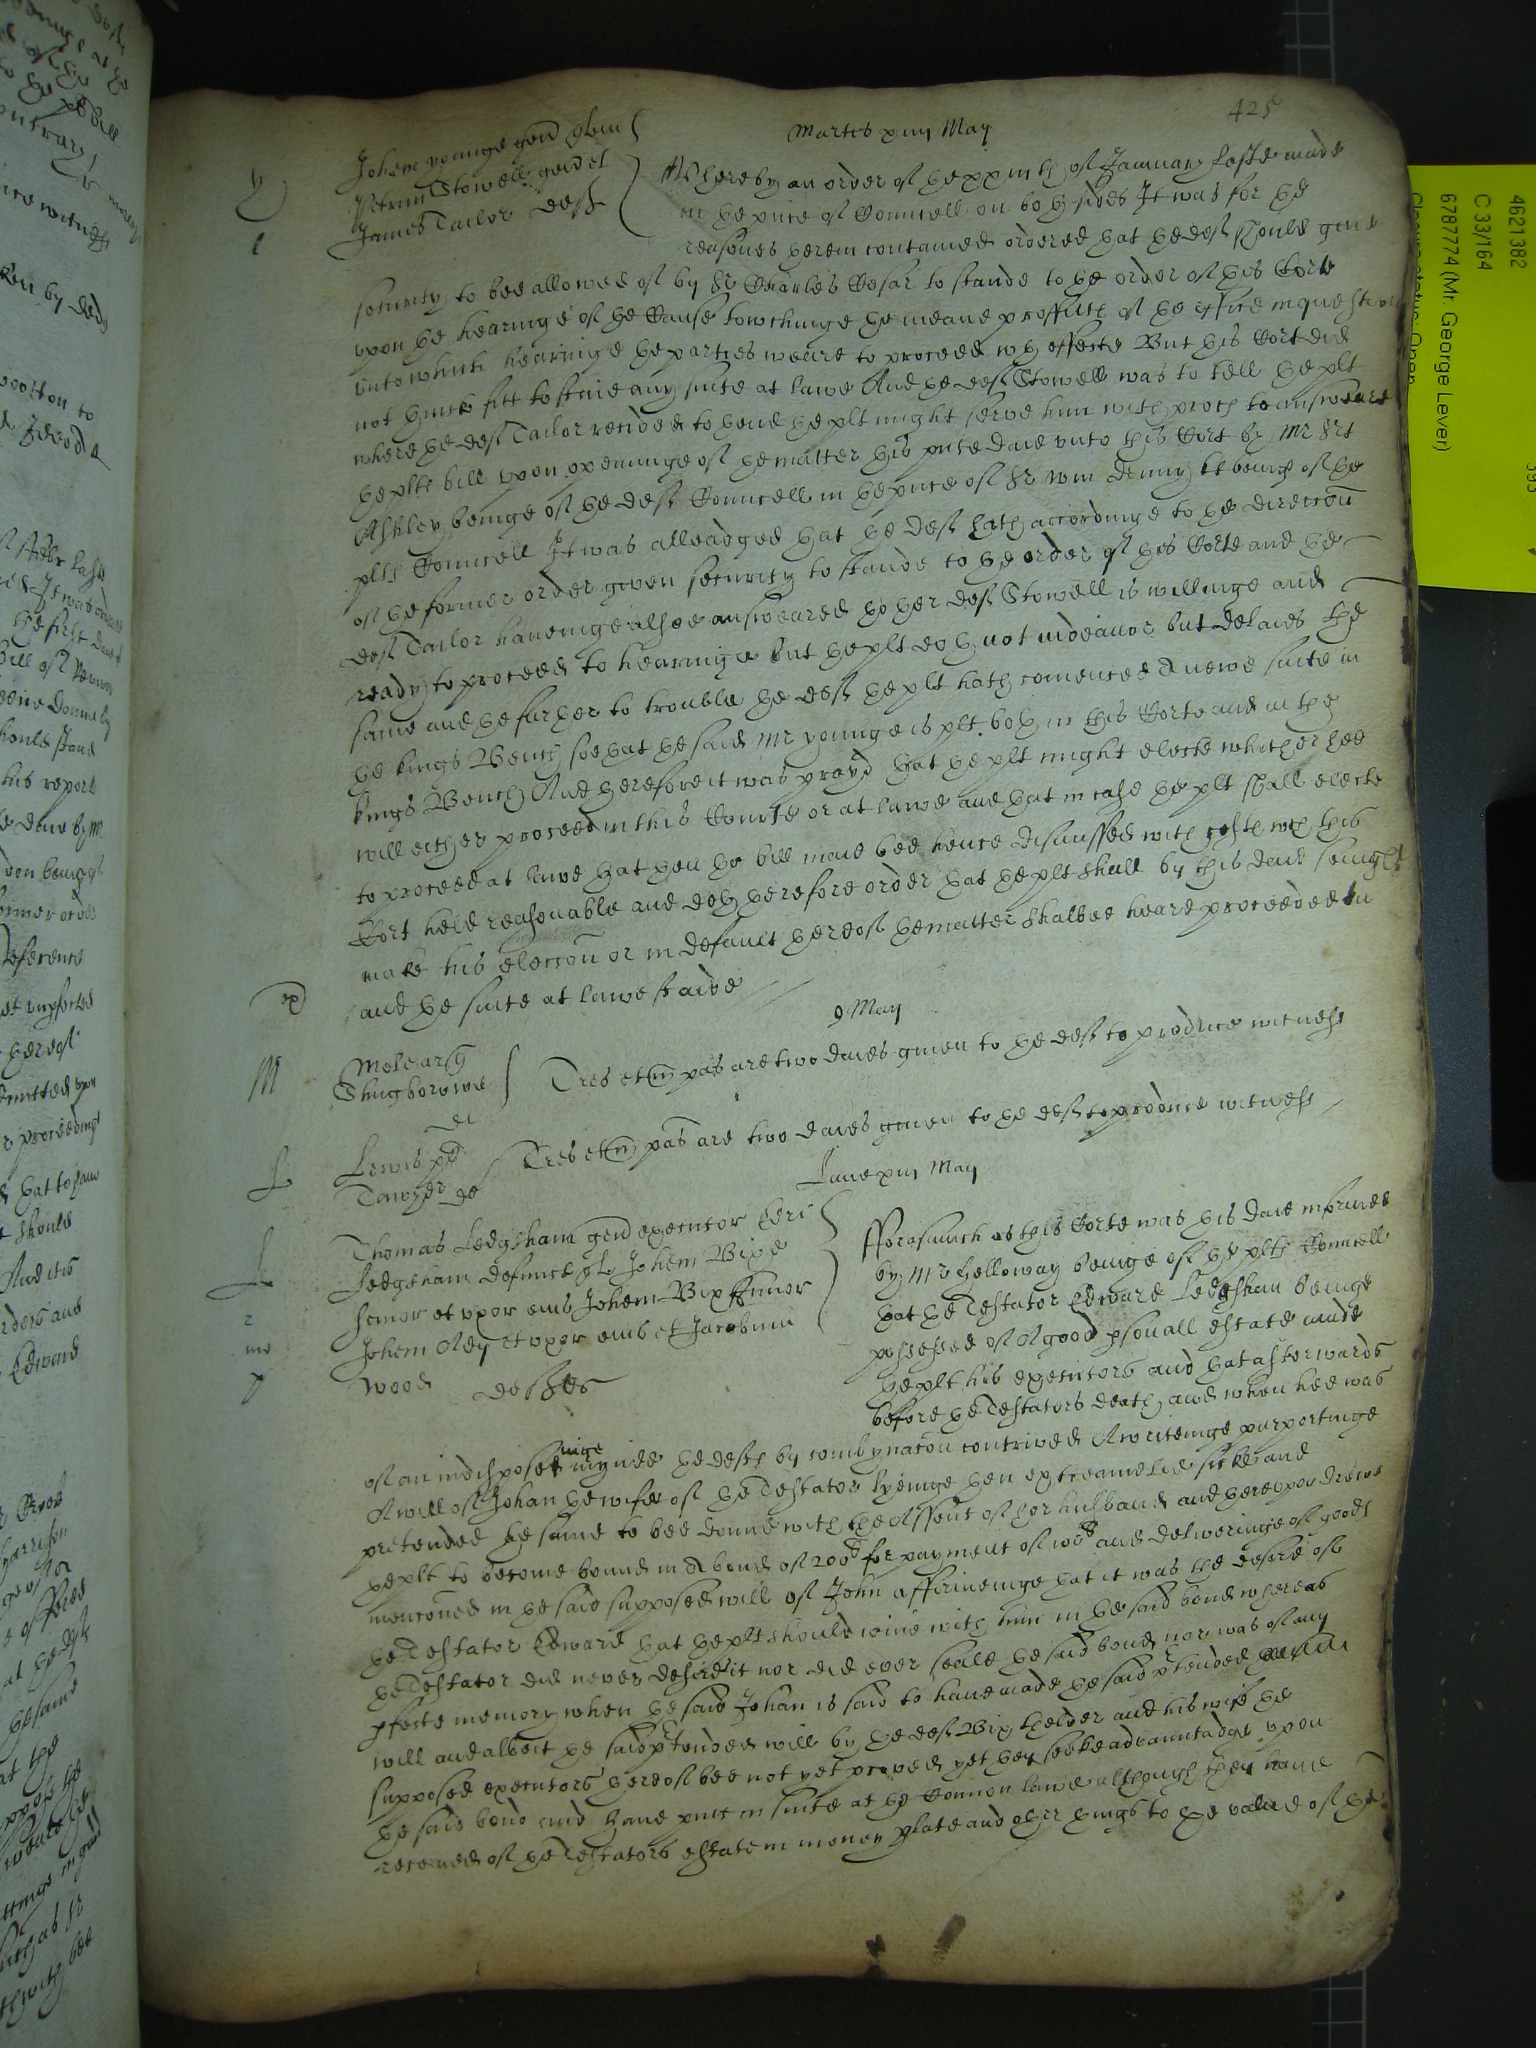 425
Martis xiiij May
Johem Younge gen quer
Petrum Stowell gen et
James Tailor deft
Whereby an order of the xxiiith of January laste made
in the pnce of Councell on both sides It was for the
reasones therein contained ordered that the deft should give
security to bee allowed of by Sr Charles Cesar to stande to the order of this Corte
upon the hearinge of the Cause towchinge the meane proffitts of the office in question
unto which hearinge the parties weare to proceed wth effecte But this Cort did
not thinke fitt to staie any suite at lawe And the deft Stowell was to tell the plt
where the deft Tailor resided to thend the plt might serve him with proces to answeare
the plts bill upon openinge of the matter this pnte daie unto this Cort by Mr Srt
Ashley beinge of the defts Councell in the pnce of Sr Wm Denny kt beinge of the
plts Councell It was alleadged that the deft hath accordinge to the direccon
of the former order given security to stande to the order of this Corte and the
deft Tailor haveinge alsoe answeared thother deft Stowell is willinge and
ready to proceed to hearinge but the plt doth not indeavor but delaies the
same and the further to trouble the deft the plt hath comenced A newe suite in
the kings Bench soe that the said Mr Younge is plt both in this Corte and in the
kings Bench And therefore it was prayd that the plt might electe whether hee
will either proceed in this Courte or at lawe and that in case the plt shall electe
to proceed at lawe that then the bill maie bee hence dismissed with costs wch this
Cort held reasonable and doth therefore order that the plt shall by this daie sevnight
make his eleccon or in default thereof the matter shalbee heare proceeded in
and the suite at lawe staide
9 May
Shugborowe
Tres et pas are two daies given to the deft to produce witness
Lewis pl
de
Tres et pas are two daies given to the deft to produce witness
Lune xiij May
Thomas Ledgsham gen executor
Ledgsham defunct qr Johem Bix
senior et uxor eius Johem Bix Junior
Johem Ady et uxor eius et Jacobum
Wood deftes
Fforasmuch as this Corte was this daie informed
by Mr Holloway beinge of the plts Councell
that the Testator Edward Ledgsham beinge
possessed of A good psonall estate made
the plt his executors and that afterwards
before the Testators death and when hee was
of an indisposeinge mynde the defts by combynacon contrived A writeinge purportinge
A will of Johan the wife of the Testator lyeinge then extreamelie sicke and
pretended the same to bee donne with the Assent of her husband and thereupon drewe
the plt to become bound in A bond of 200l for payment of 100l and deliveringe of goods
mencioned in the said supposed will of John affirmeinge that it was the desire of
the Testator Edward that the plt should joine with him in the said bond whereas
the Testator did never desire it nor did ever seale the said bond nor was of any
pfecte memory when the said Johan is said to have made the said ptended
will and albeit the said ptended will by the deft Bix thelder and his wife the
supposed executors thereof bee not yet proved yet they seeke advanntadge upon
the said bond and have putt in suite at the Comon lawe although they have
receaved of the Testators estate in money plate and other things to the value of the
4621382
C 33/164
6787774 (Mr. George Lever)